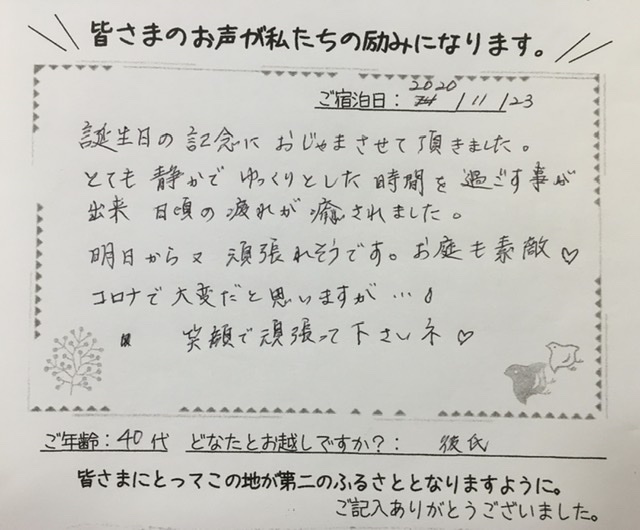 皆さまのお声が私たちの励みになります。
ご宿泊日：2020/11/23
誕生日の記念に おじゃまさせて頂きました。
とても 静かで ゆっくりとした 時間を 過ごす事が
出来 日頃の 疲れが 癒されました。
明日から又 頑張れそうです。お庭も素敵♡
コロナで大変だと思いますが…
笑顔で頑張って下さいネ♡
ご年齢：40代 どなたとお越しですか？： 彼氏
皆さまにとってこの地が第二のふるさととなりますように。
ご記入ありがとうございました。